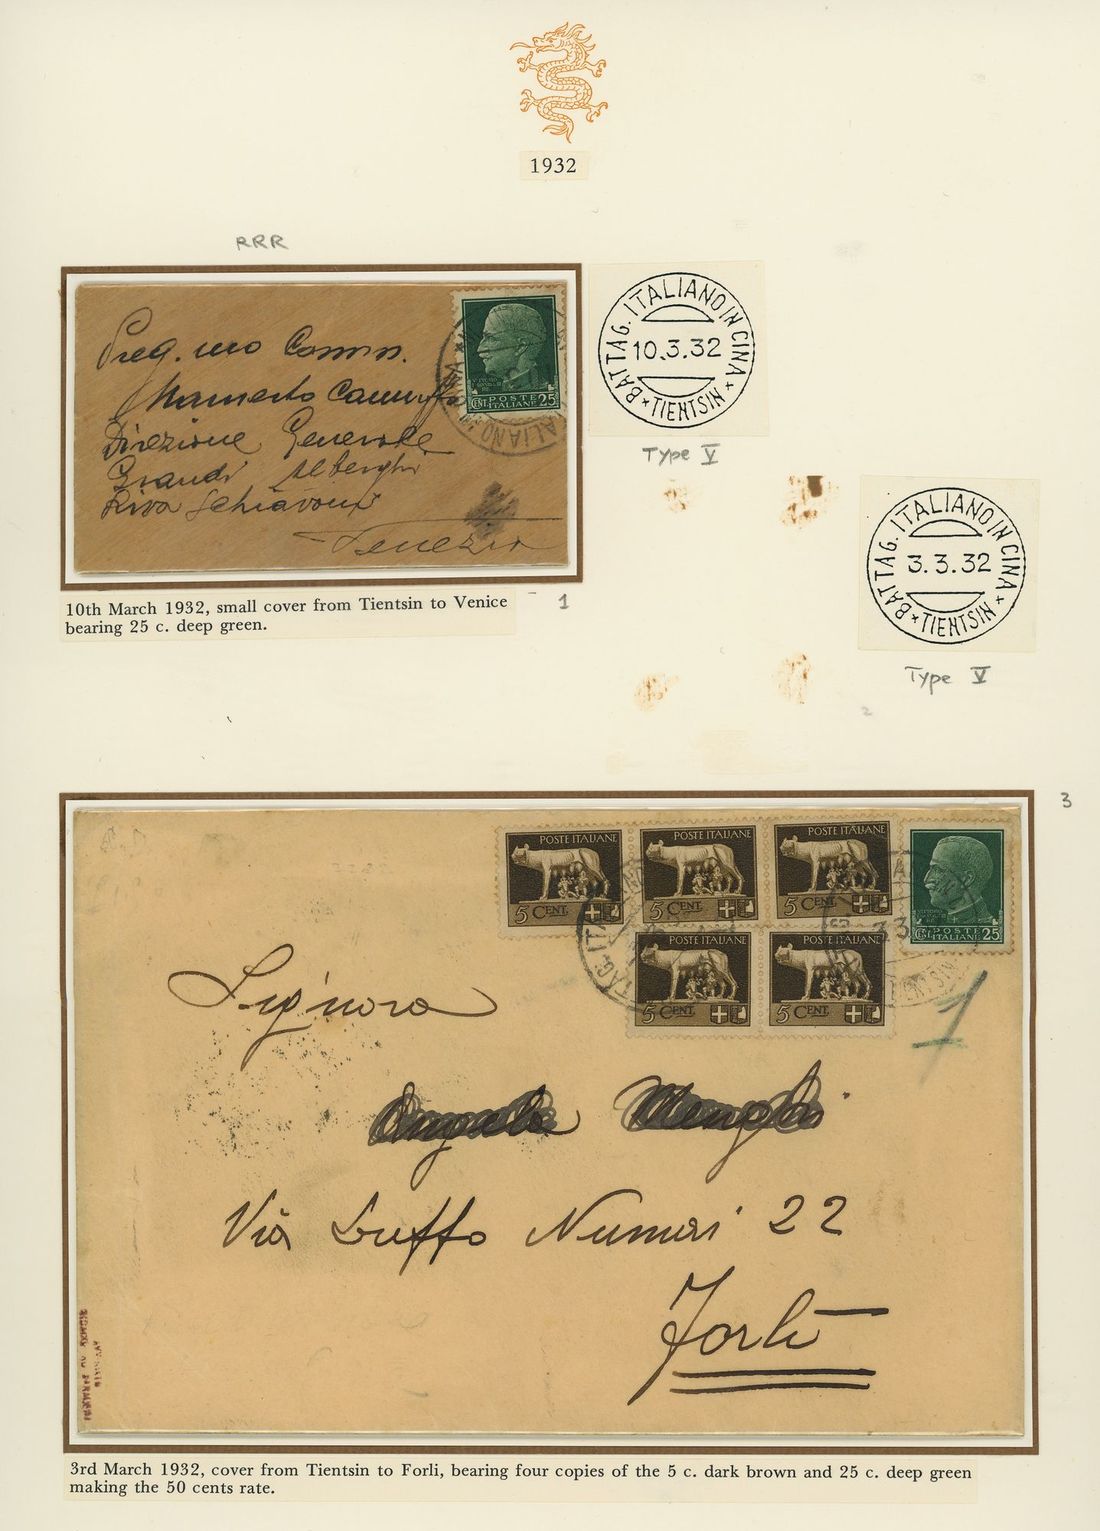 1932
RRR
Preg. mo Comm.
Direzione Generale
Grandi Alberghi
Riva Schiavoni
Venezia
POSTE
ITALIANE
CENT. 25
BATTAG. ITALIANO IN CINA
10.3.32
* TIENTSIN *
Type V
10th March 1932, small cover from Tientsin to Venice
bearing 25 c. deep green.
1
BATTAG. ITALIANO IN CINA
3.3.32
* TIENTSIN *
Type V
2
3
POSTE ITALIANE
5 CENT.
POSTE ITALIANE
5 CENT.
POSTE ITALIANE
5 CENT.
POSTE
ITALIANE
CENT. 25
POSTE ITALIANE
5 CENT.
POSTE ITALIANE
5 CENT.
1
Signora
Angela
Via Luffo Numai 22
Forlì
3rd March 1932, cover from Tientsin to Forli, bearing four copies of the 5 c. dark brown and 25 c. deep green
making the 50 cents rate.